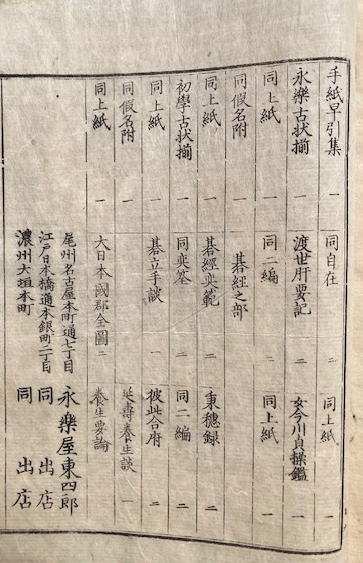 手紙早引集 一 同自在 一 同上紙 一
永樂古状揃 一 渡世肝要記 二 女今川貞操鑑 一
同上紙 一 同二編 二 同上紙 一
同假名附 一 碁經之部
同上紙 一 碁經奕範 二 秉穂録 二
初學古状揃 一 同奕筌 二 同二編 二
同上紙 一 碁立手談 一 彼此合府 二
同假名附 一 延壽養生談 一
同上紙 一 大日本國郡全圖 二 養生要論 一
尾州名古屋本町通七丁目 永樂屋東四郎
江戸日本橋通本銀町二丁目 同出店
濃州大垣本町 同出店